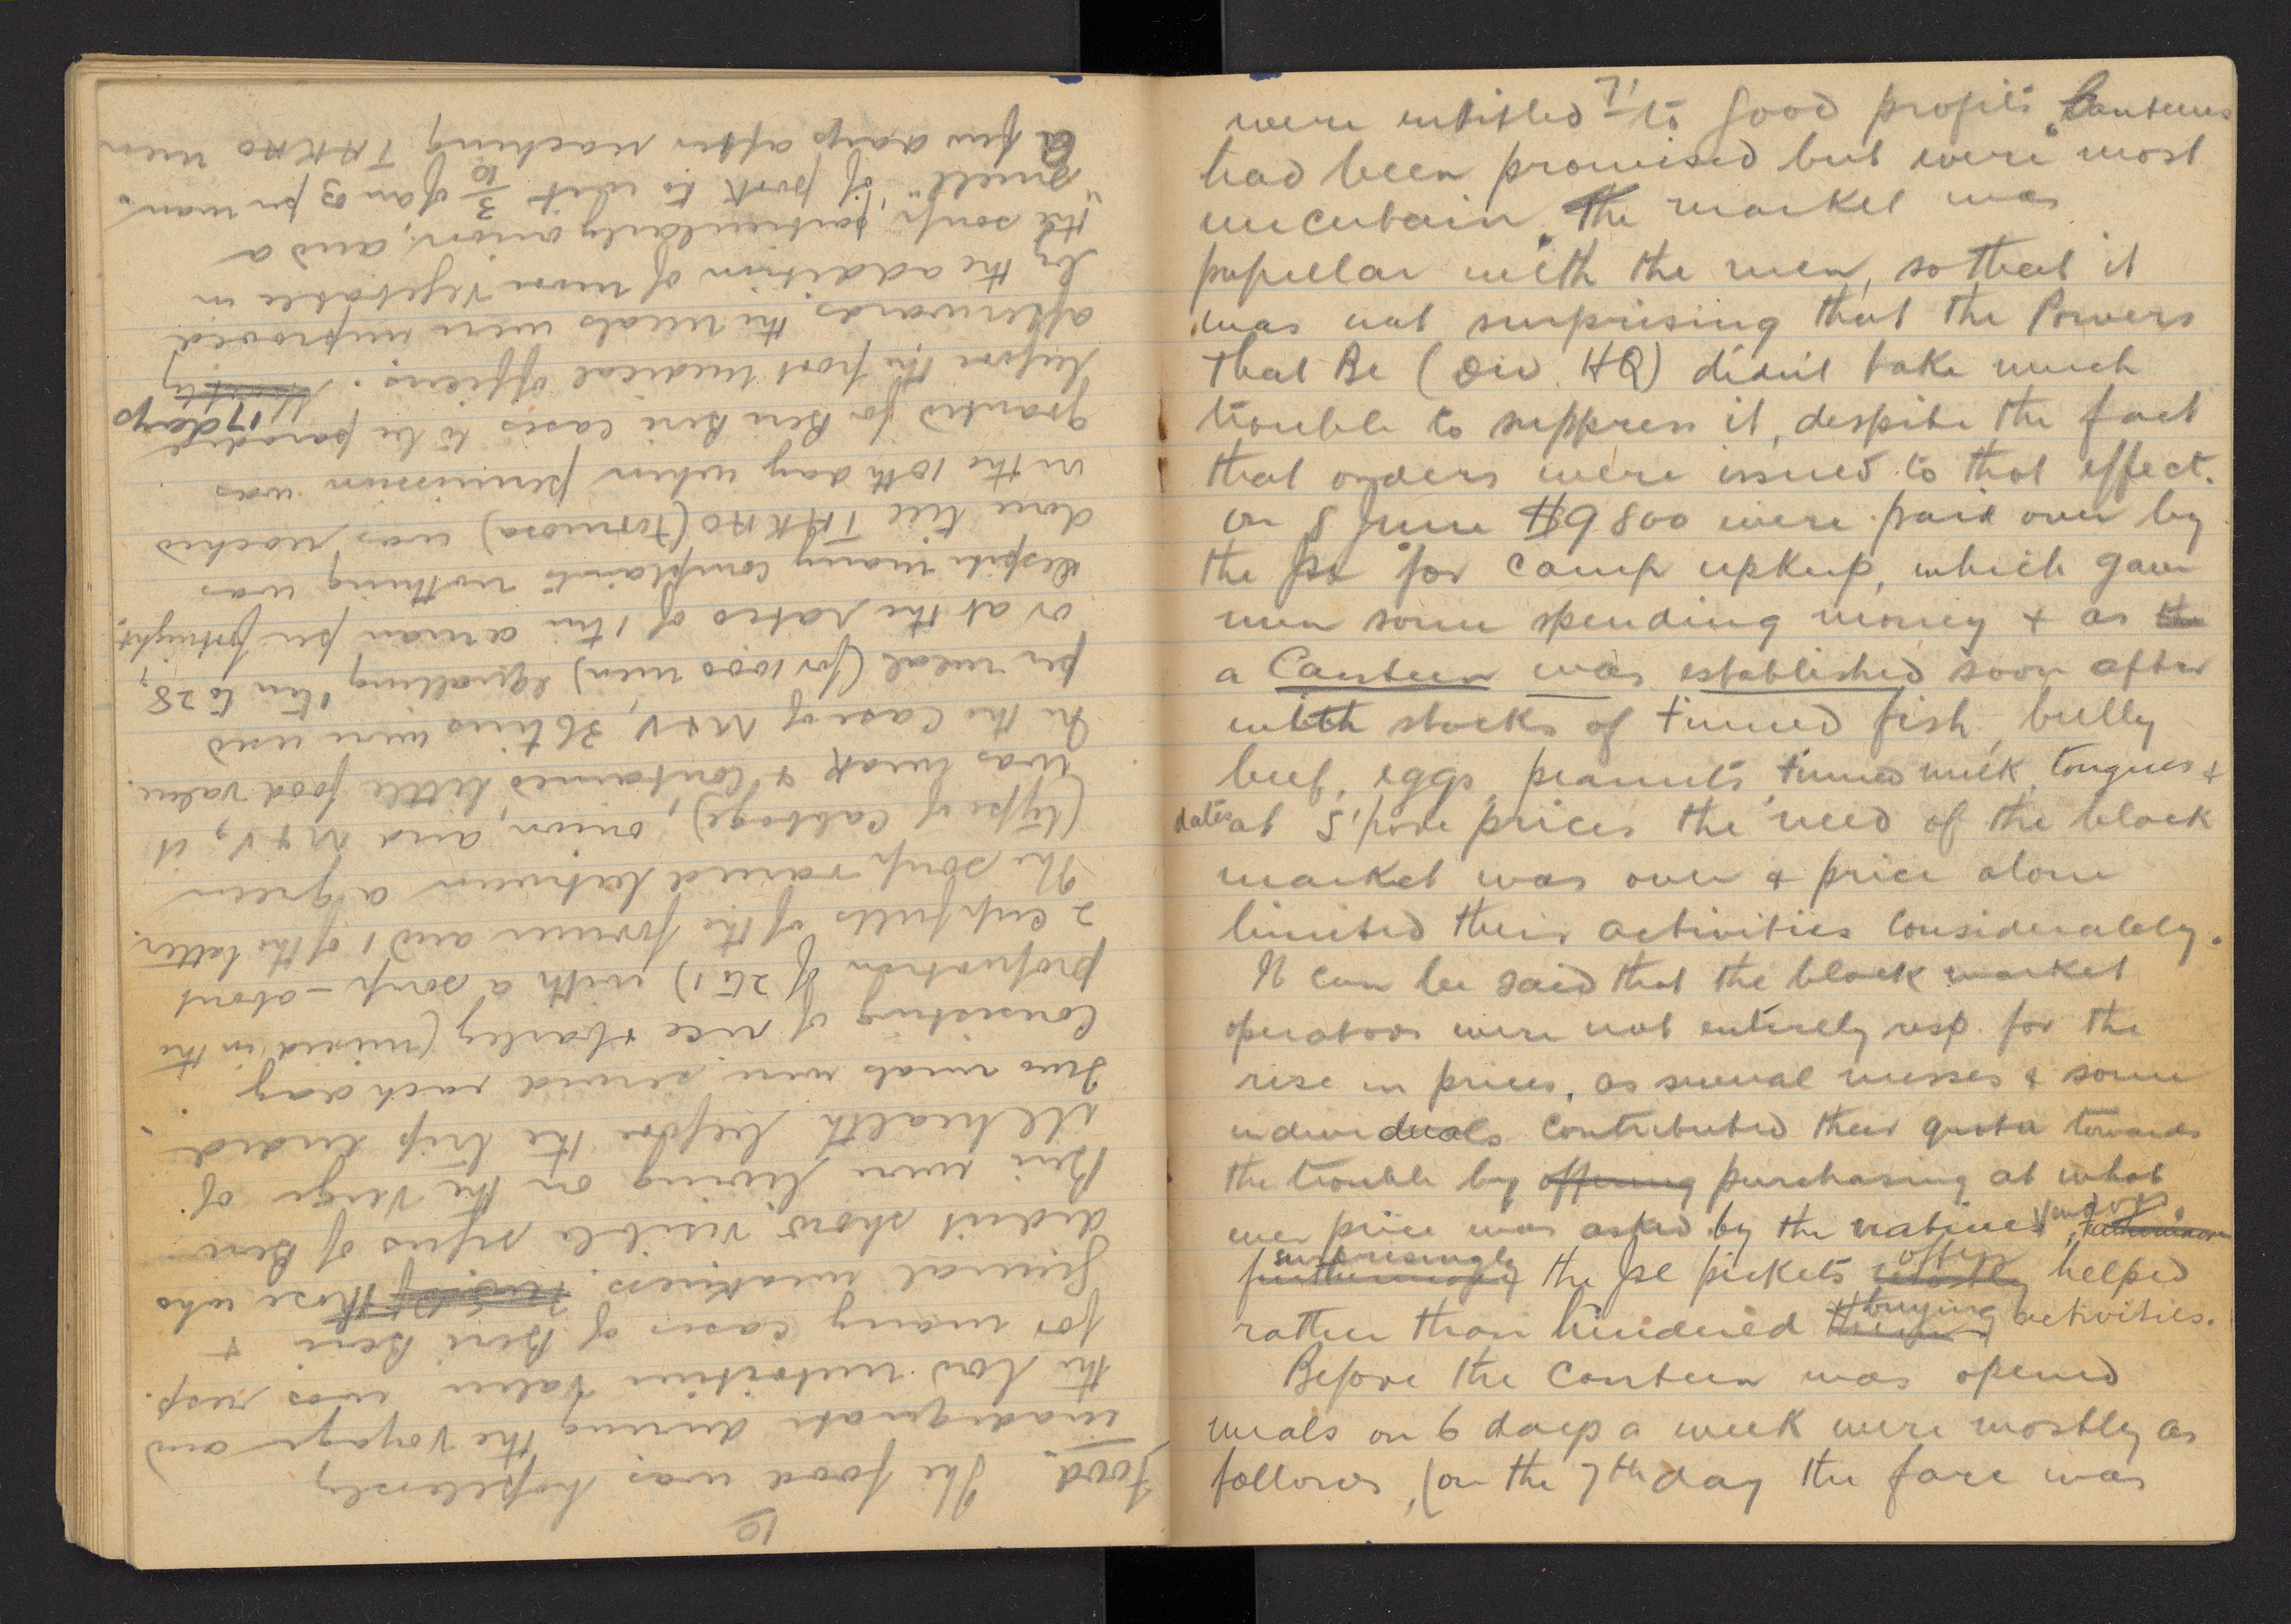 10
Food. The food was hopelessly
inadequate during the voyage and
the low nutrition value was resp.
for many cases of Beri Beri &
general weakness. those who
didn't show visible signs of Beri
Beri were living on the verge of
ill health before the trip ended.
Two meals were served each day
consisting of rice & barley (mixed in the
proportion of 2 to 1) with a soup – about
2 cupfulls of the former and 1 of the latter.
The soup varied between a green
(type of cabbage), onion, and M & V, it
was weak & contained little food value.
In the case of M & V, 36 tins were used
per meal (for 1000 men) equalling 1 tin to 28,
or at the rates of 1 tin a man per fortnight.
Despite many complaints nothing was
done till TAKAO (Formosa) was reached
on the 10th day when permission was
granted for Beri Beri cases to be paraded
before the port medical officers. 17 days
afterwards, the meals were improved
by the addition of more vegetable in
the soup, particularly onion, and a
"smell" of pork to wit 3/10 of an oz per man.
A few days after reaching TAKAO men
71
were entitled to good profits. Canteens
had been promised but were most
uncertain. The market was
popular with the men, so that it
was not surprising that the Powers
that Be (Div. HQ) didn't take much
trouble to suppress it, despite the fact
that orders were issued to that effect.
On 8 June $9800 were paid over by
the Js for camp upkeep, which gave
men some spending money & as the
a Canteen was established soon after
with stocks of tinned fish, bully
beef, eggs, peanuts, tinned milk, tongues &
dates at S'pore prices the need of the black
market was over & price alone
limited their activities considerably.
It can be said that the black market
operators were not entirely resp. for the
rise in prices, as several messes & some
individuals contributed their quota towards
the trouble by offering purchasing at what
ever price was asked by the native vendors. furthermore
furthermore surprisingly the Js pickets mostly often helped
rather than hindered their buying activities.
Before the Canteen was opened
meals on 6 days a week were mostly as
follows, (on the 7th day the fare was